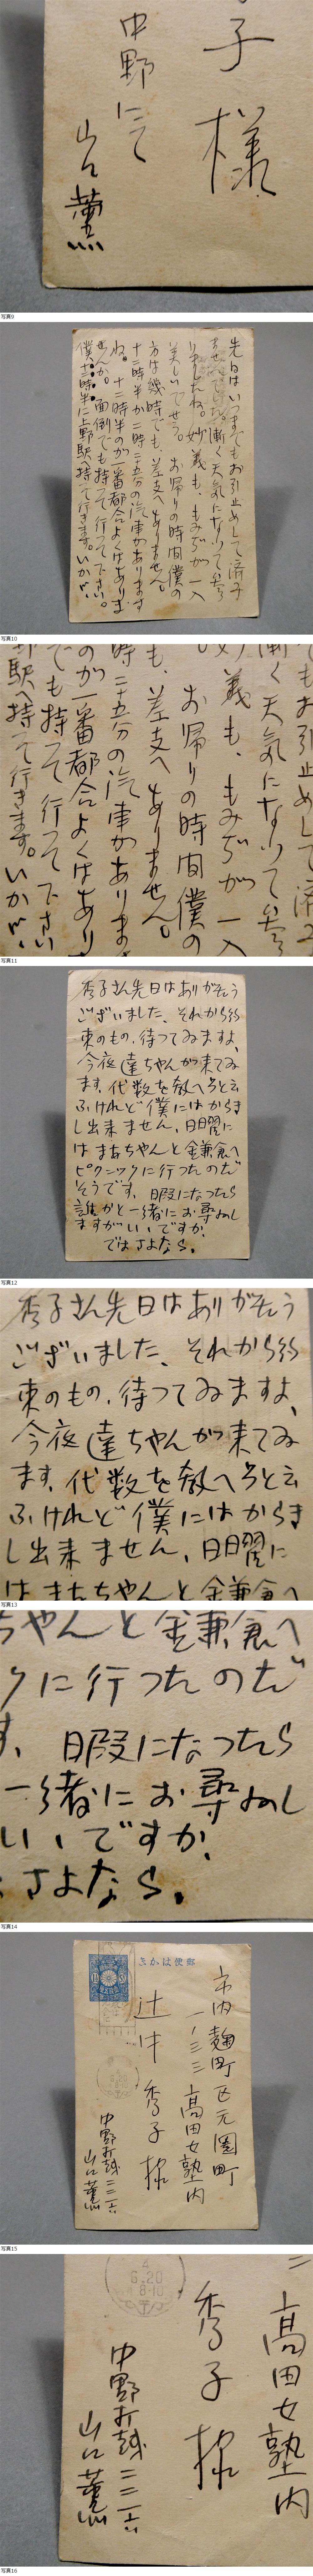 子様
中野にて
山口薫
写真9
先日はいつまでもお引止めして済み
ませんでした。漸く天気になつて参
りましたね。妙義も、もみぢが一入
美しいでせう。お帰りの時間僕の
方は幾時でも、差支へありません。
十二時半か二時二十五分の汽車があります
ね。十二時半のが一番都合よくはありま
せんか。面倒でも持つて行つて下さい。
僕十二時半に上野駅へ持つて行きます。いかが。
写真10
でもお引止めして済み
漸く天気になつて参
妙義も、もみぢが一入
お帰りの時間僕の
も、差支へありません。
時二十五分の汽車があります
のが一番都合よくはあり
でも持つて行つて下さい
野駅へ持つて行きます。いかが、
写真11
秀子さん先日はありがたう
ございました、それから約
束のもの、待つてゐますよ、
今夜達ちやんが来てゐ
ます、代数を教へろと云
ふけれど僕にはからき
し出来ません、日曜に
はまあちやんと鎌倉へ
ピクニックに行つたのだ
そうです、暇になつたら
誰かと一緒にお尋ねし
ますがいいですか、
ではさよなら。
写真12
秀子さん先日はありがたう
ございました、それから約
束のもの、待つてゐますよ、
今夜達ちやんが来てゐ
ます、代数を教へろと云
ふけれど僕にはからき
し出来ません、日曜に
はまあちやんと鎌倉へ
写真13
ちやんと鎌倉へ
クに行つたのだ
す、暇になつたら
一緒にお尋ねし
いいですか、
さよなら。
写真14
郵便はかき
市内麹町区元園町
一ノ三三 高田女塾内
辻中秀子様
中野打越二三一六
山口薫
写真15
高田女塾内
秀子様
6.20
8-10
中野打越二三一六
山口薫
写真16